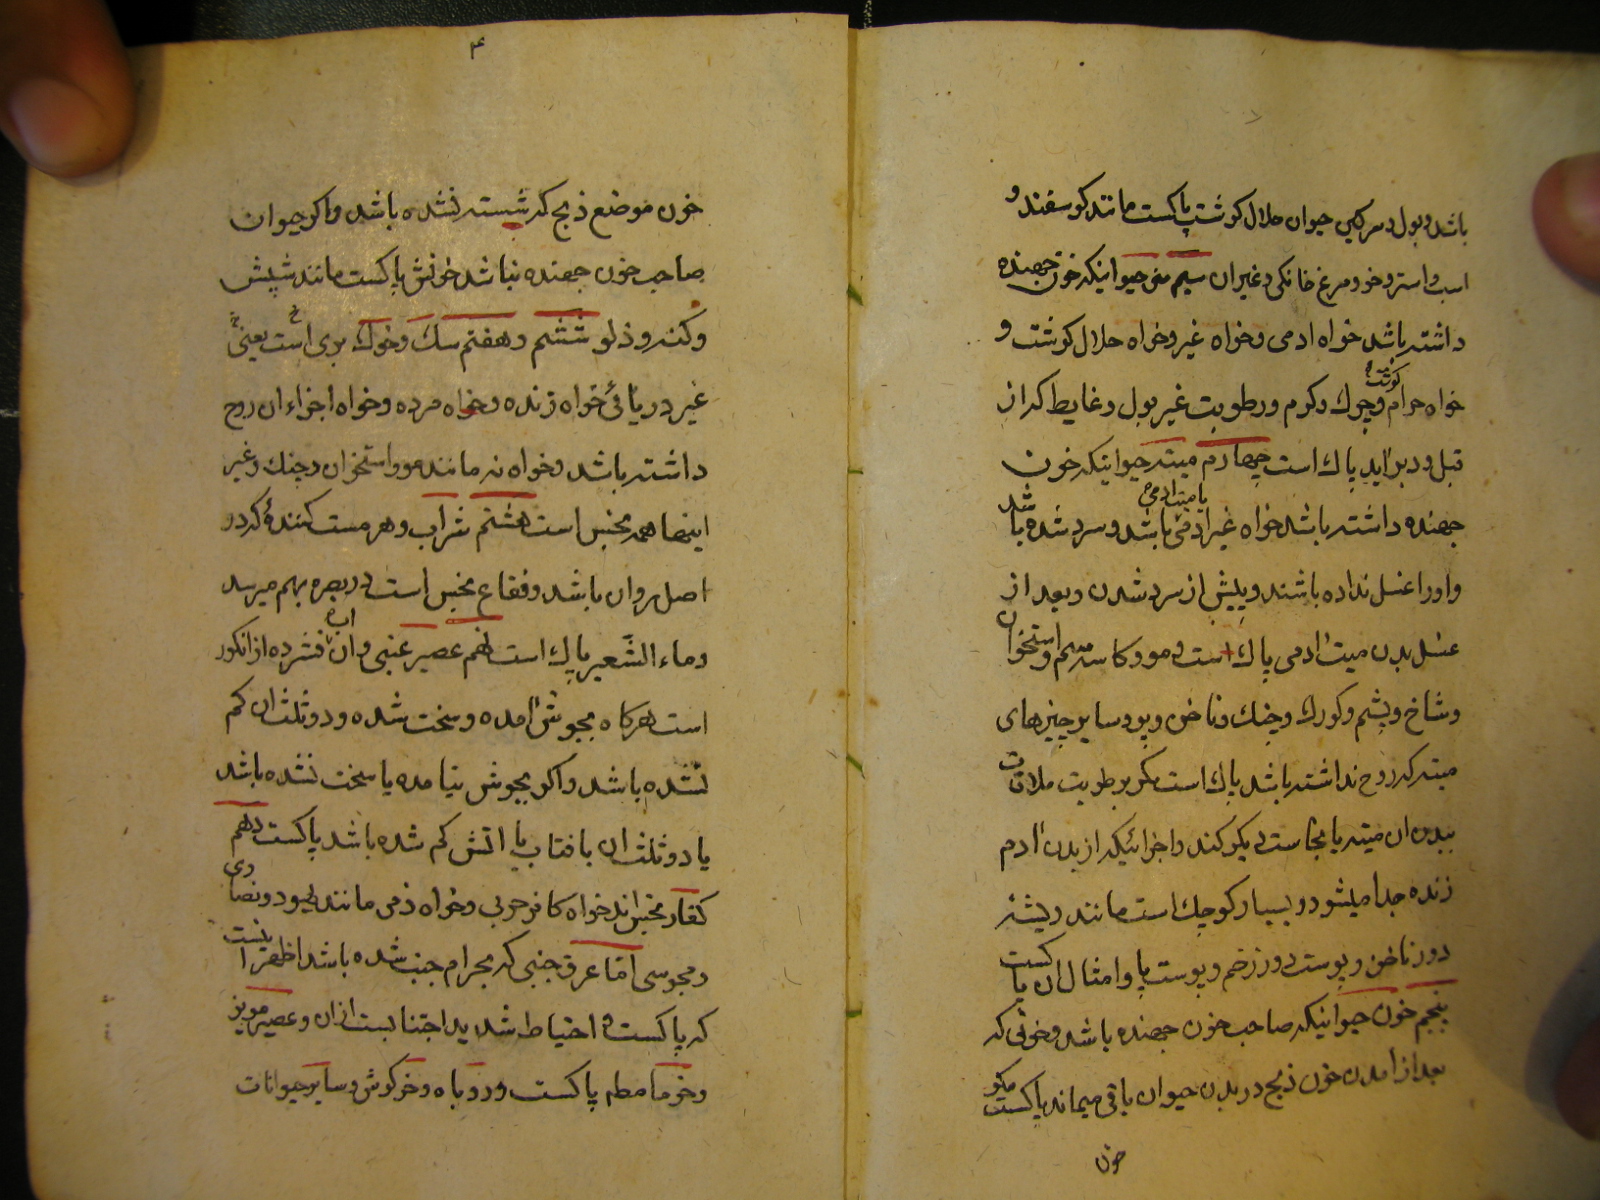 باشد و بول و سرکین حیوان حلال کوشت پاکست مانند کوسفند و
اسب و استر و خر و مرغ خانکی و غیر ان سیم منی حیوانیکه خون جهنده
داشته باشد خواه ادمی و خواه غیر و خواه حلال کوشت و
خواه حرام کوشت و چرك و کرم و رطوبت غیر بول و غایط که از
قبل و دبر اید پاك است چهارم میته حیوانیکه خون
جهنده داشته باشد خواه غیر ادمی باشد یا میت ادمی و سرد شده باشد
و او را غسل نداده باشند و پیش از سرد شدن و بعد از
غسل بدن میت ادمی پاك است و مو و کاسه سم و استخوان
و شاخ و پشم و کورك و چنك و ناخن و پر و سایر چیزهای
میته که روح نداشته باشد پاك است مکر برطوبت ملاقات
ببدن ان میته یا نجاست دیکر کند و اجزائیکه از بدن ادم
زنده جدا میشود و بسیار کوچك است مانند ریشهٔ
دور ناخن و پوست دور زخم و پوست پا و امثال ان پاکست
پنجم خون حیوانیکه صاحب خون جهنده باشد و خونی که
بعد از امدن خون ذبح در بدن حیوان باقی میماند پاکست مکر
خون
۴
خون موضع ذبح که شسته نشده باشد و اکر حیوان
صاحب خون جهنده نباشد خونش پاکست مانند شپش
و کنه و ذلو ششم و هفتم سك و خوك بری است یعنی
غیر دریائی خواه زنده و خواه مرده و خواه اجزاء ان روح
داشته باشد و خواه نه مانند مو و استخوان و چنك و غیر
اینها همه نجس است هشتم شراب و هر مست کنندهٔ که در
اصل روان باشد و فقاع نجس است در بصره بهم میرسد
و ماء الشعیر پاك است نهم عصیر عنبی و ان اب فشرده از انکور
است هرکاه بجوش امده و سخت شده و دو ثلث ان کم
نشده باشد و اکر بجوش نیامده یا سخت نشده باشد
یا دو ثلث ان بافتاب یا اتش کم شده باشد پاکست دهم
کفار نجس اند خواه کافر حربی و خواه ذمی مانند یهود و نصاری
و مجوسی اما عرق جنبی که بحرام جنب شده باشد اظهر انست
که پاکست و احتیاط شدید اجتنابست از ان و عصیر مویز
و خرما مطلم پاکست و روباه و خرکوش و سایر حیوانات